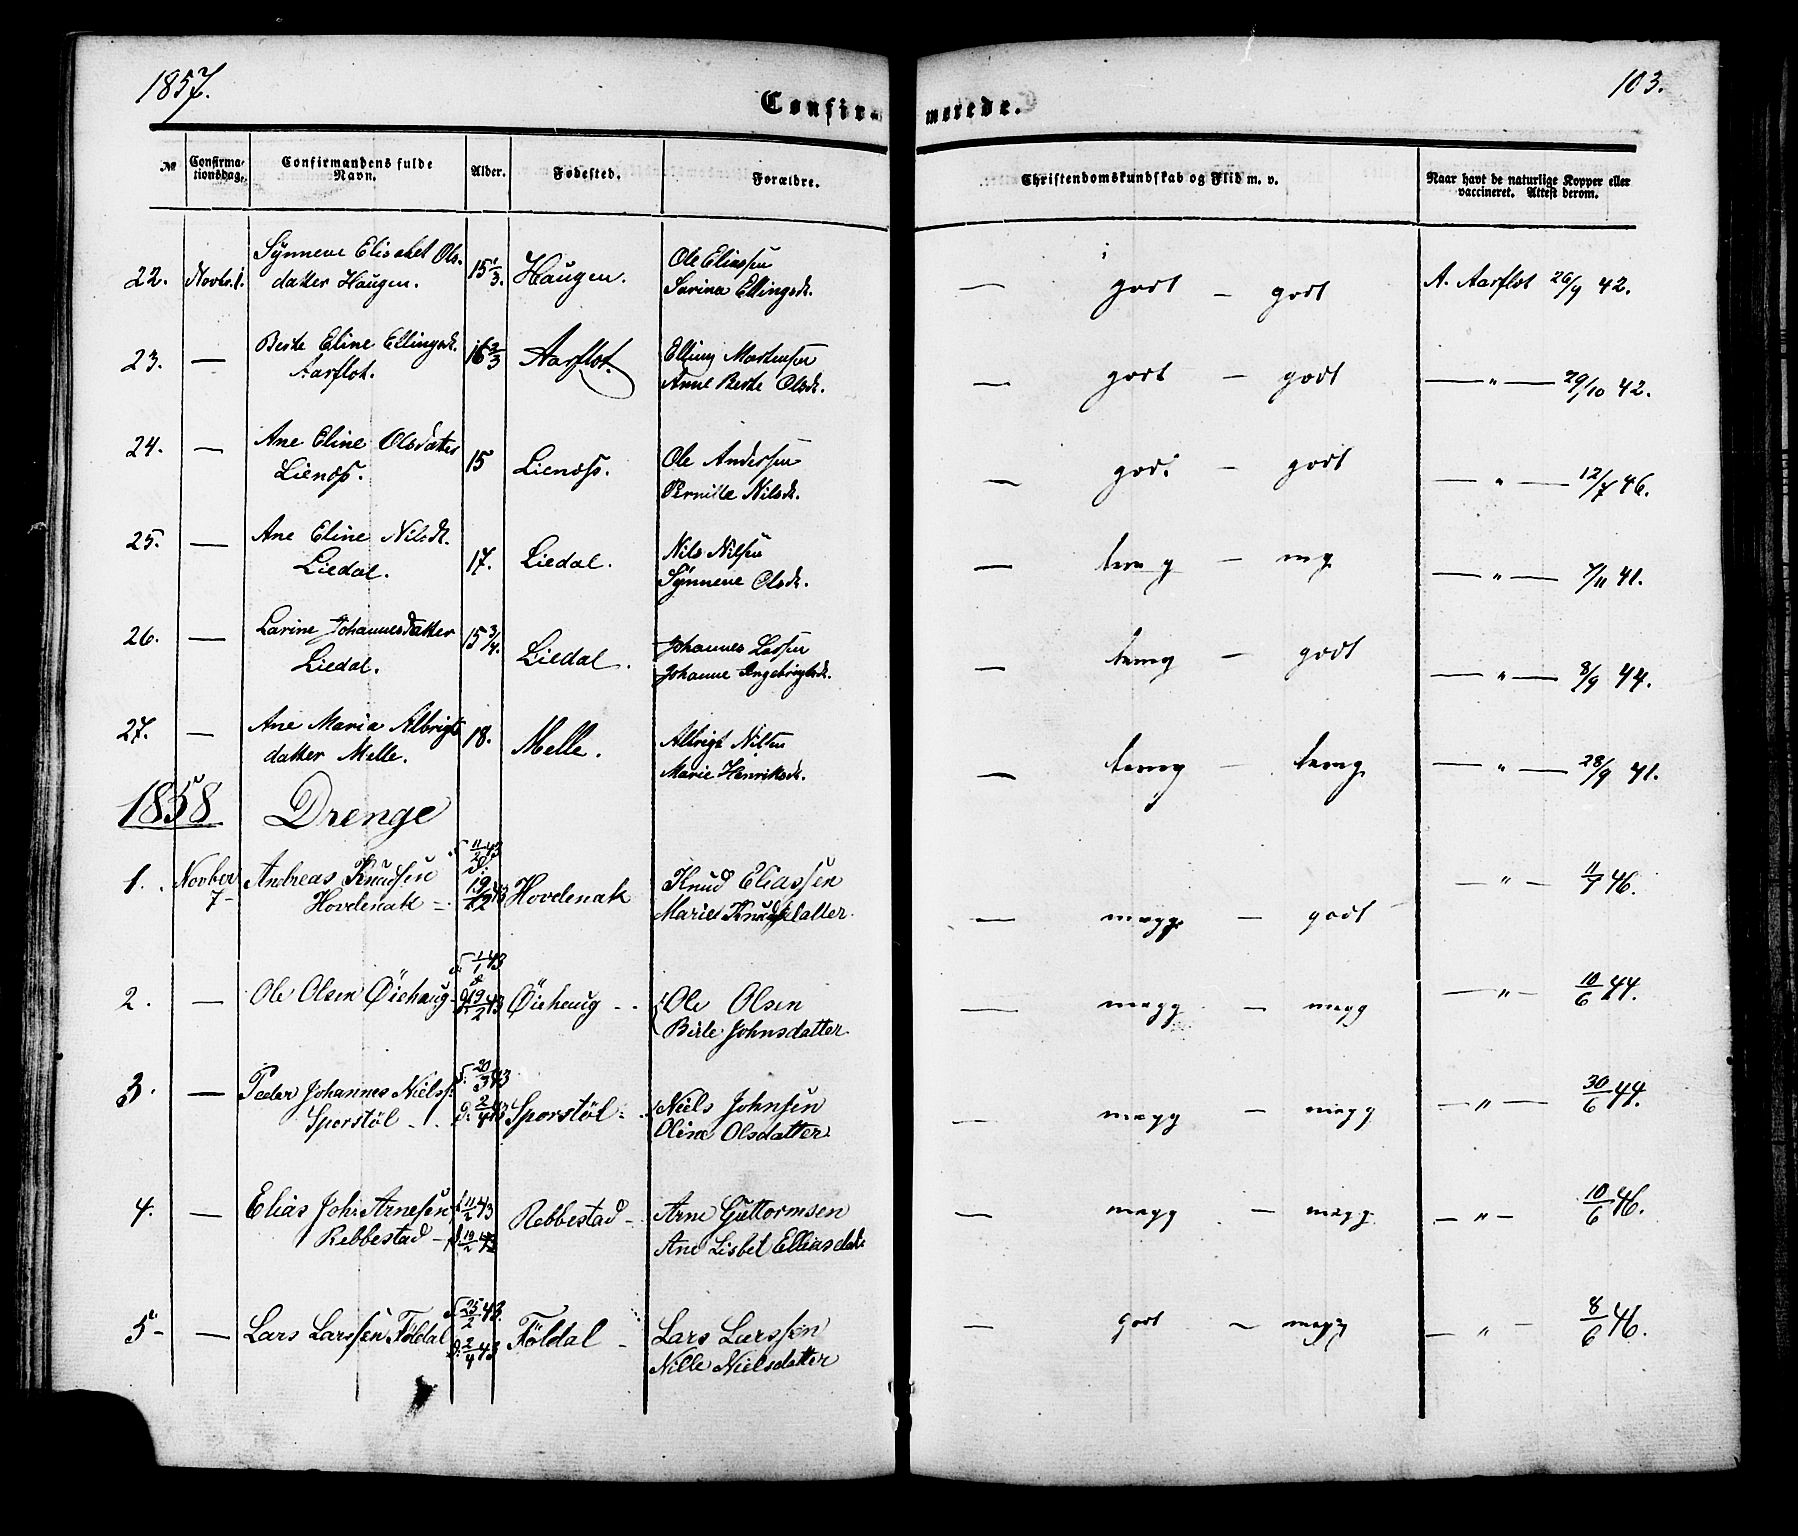 1857.
103.
Confir-
merede.
№
Confirma-
tionsdag.
Confirmandens fulde
Navn.
Alder.
Fødested.
Forældre.
Christendomskundskab og Flid m. v.
Naar havt de naturlige Kopper eller
vaccineret. Attest derom.
22. Novbr. 1. Synneve Elisabet Ols-
datter Haugen. 15 1/3. Haugen. Ole Eliassen
Sarina Ellingsdt. — godt — godt A. Aarflot 26/9 42.
23. — Berte Eline Ellingsdt.
Aarflot. 16 2/3 Aarflot. Elling Mortensen
Anne Berte Olsdt. — godt — godt — " — 29/10 42.
24. — Ane Eline Olsdatter
Lienæss. 15 Lienæss. Ole Anderssen
Pernille Nilsdt. — godt — godt — " — 12/7 46.
25. — Ane Eline Nilsdt.
Liedal. 17. Liedal. Nils Nilsen
Synneve Olsdt. — temg — mg — " — 7/11 41.
26. — Larine Johannesdatter
Liedal. 15 3/4. Liedal. Johannes Lassen
Johanne Ingebrigtsdt. — temg — godt — " — 8/9 44.
27. — Ane Maria Albrigts
datter Melle. 18. Melle. Albrigt Nilsen
Marie Henriksdt. — temg — temg — " — 28/9 41.
1858 Drenge
1. Novber
7 - Andreas Knudsen
Hovdenak - 43 19/2 43 Hovdenak Knud Eliassen
Marie Knudsdatter. — megg — godt — " — 46.
2. — Ole Olsen Øiehaug - 1/1 43 19/2 43 Øiehaug - - Ole Olsen
Birte Johnsdatter — megg — megg — " — 10/6 44.
3. — Peder Johannes Nielss:
Sporstöl - . f. 20/3 43 d: 2/4 43 Sporstöl - . Niels Johnsen
Oline Olsdatter — megg — megg — " — 30/6 44.
4. — Elias Joh: Arnesen
Rebbestad - f. 11/2 43 d. 19/2 43 Rebbestad - Arne Guttormsen
Ane Lisbet Elliasdatr — megg — megg — " — 10/6 46.
5 - — Lars Larssen Földal f. 25/2 43. d. 2/4 43 Földal - Lars Larssen
Nille Nielsdatter — godt — megg — " — 8/6 46.